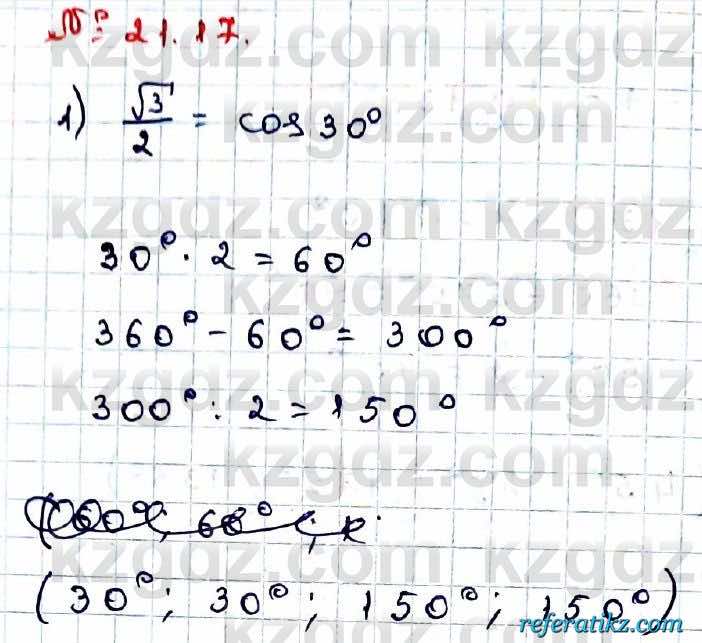 № 21.17.
1) √3/2 = cos 30°
30° · 2 = 60°
360° - 60° = 300°
300° : 2 = 150°
(30°; 30°; 150°; 150°)
kzgdz.com
referatikz.com